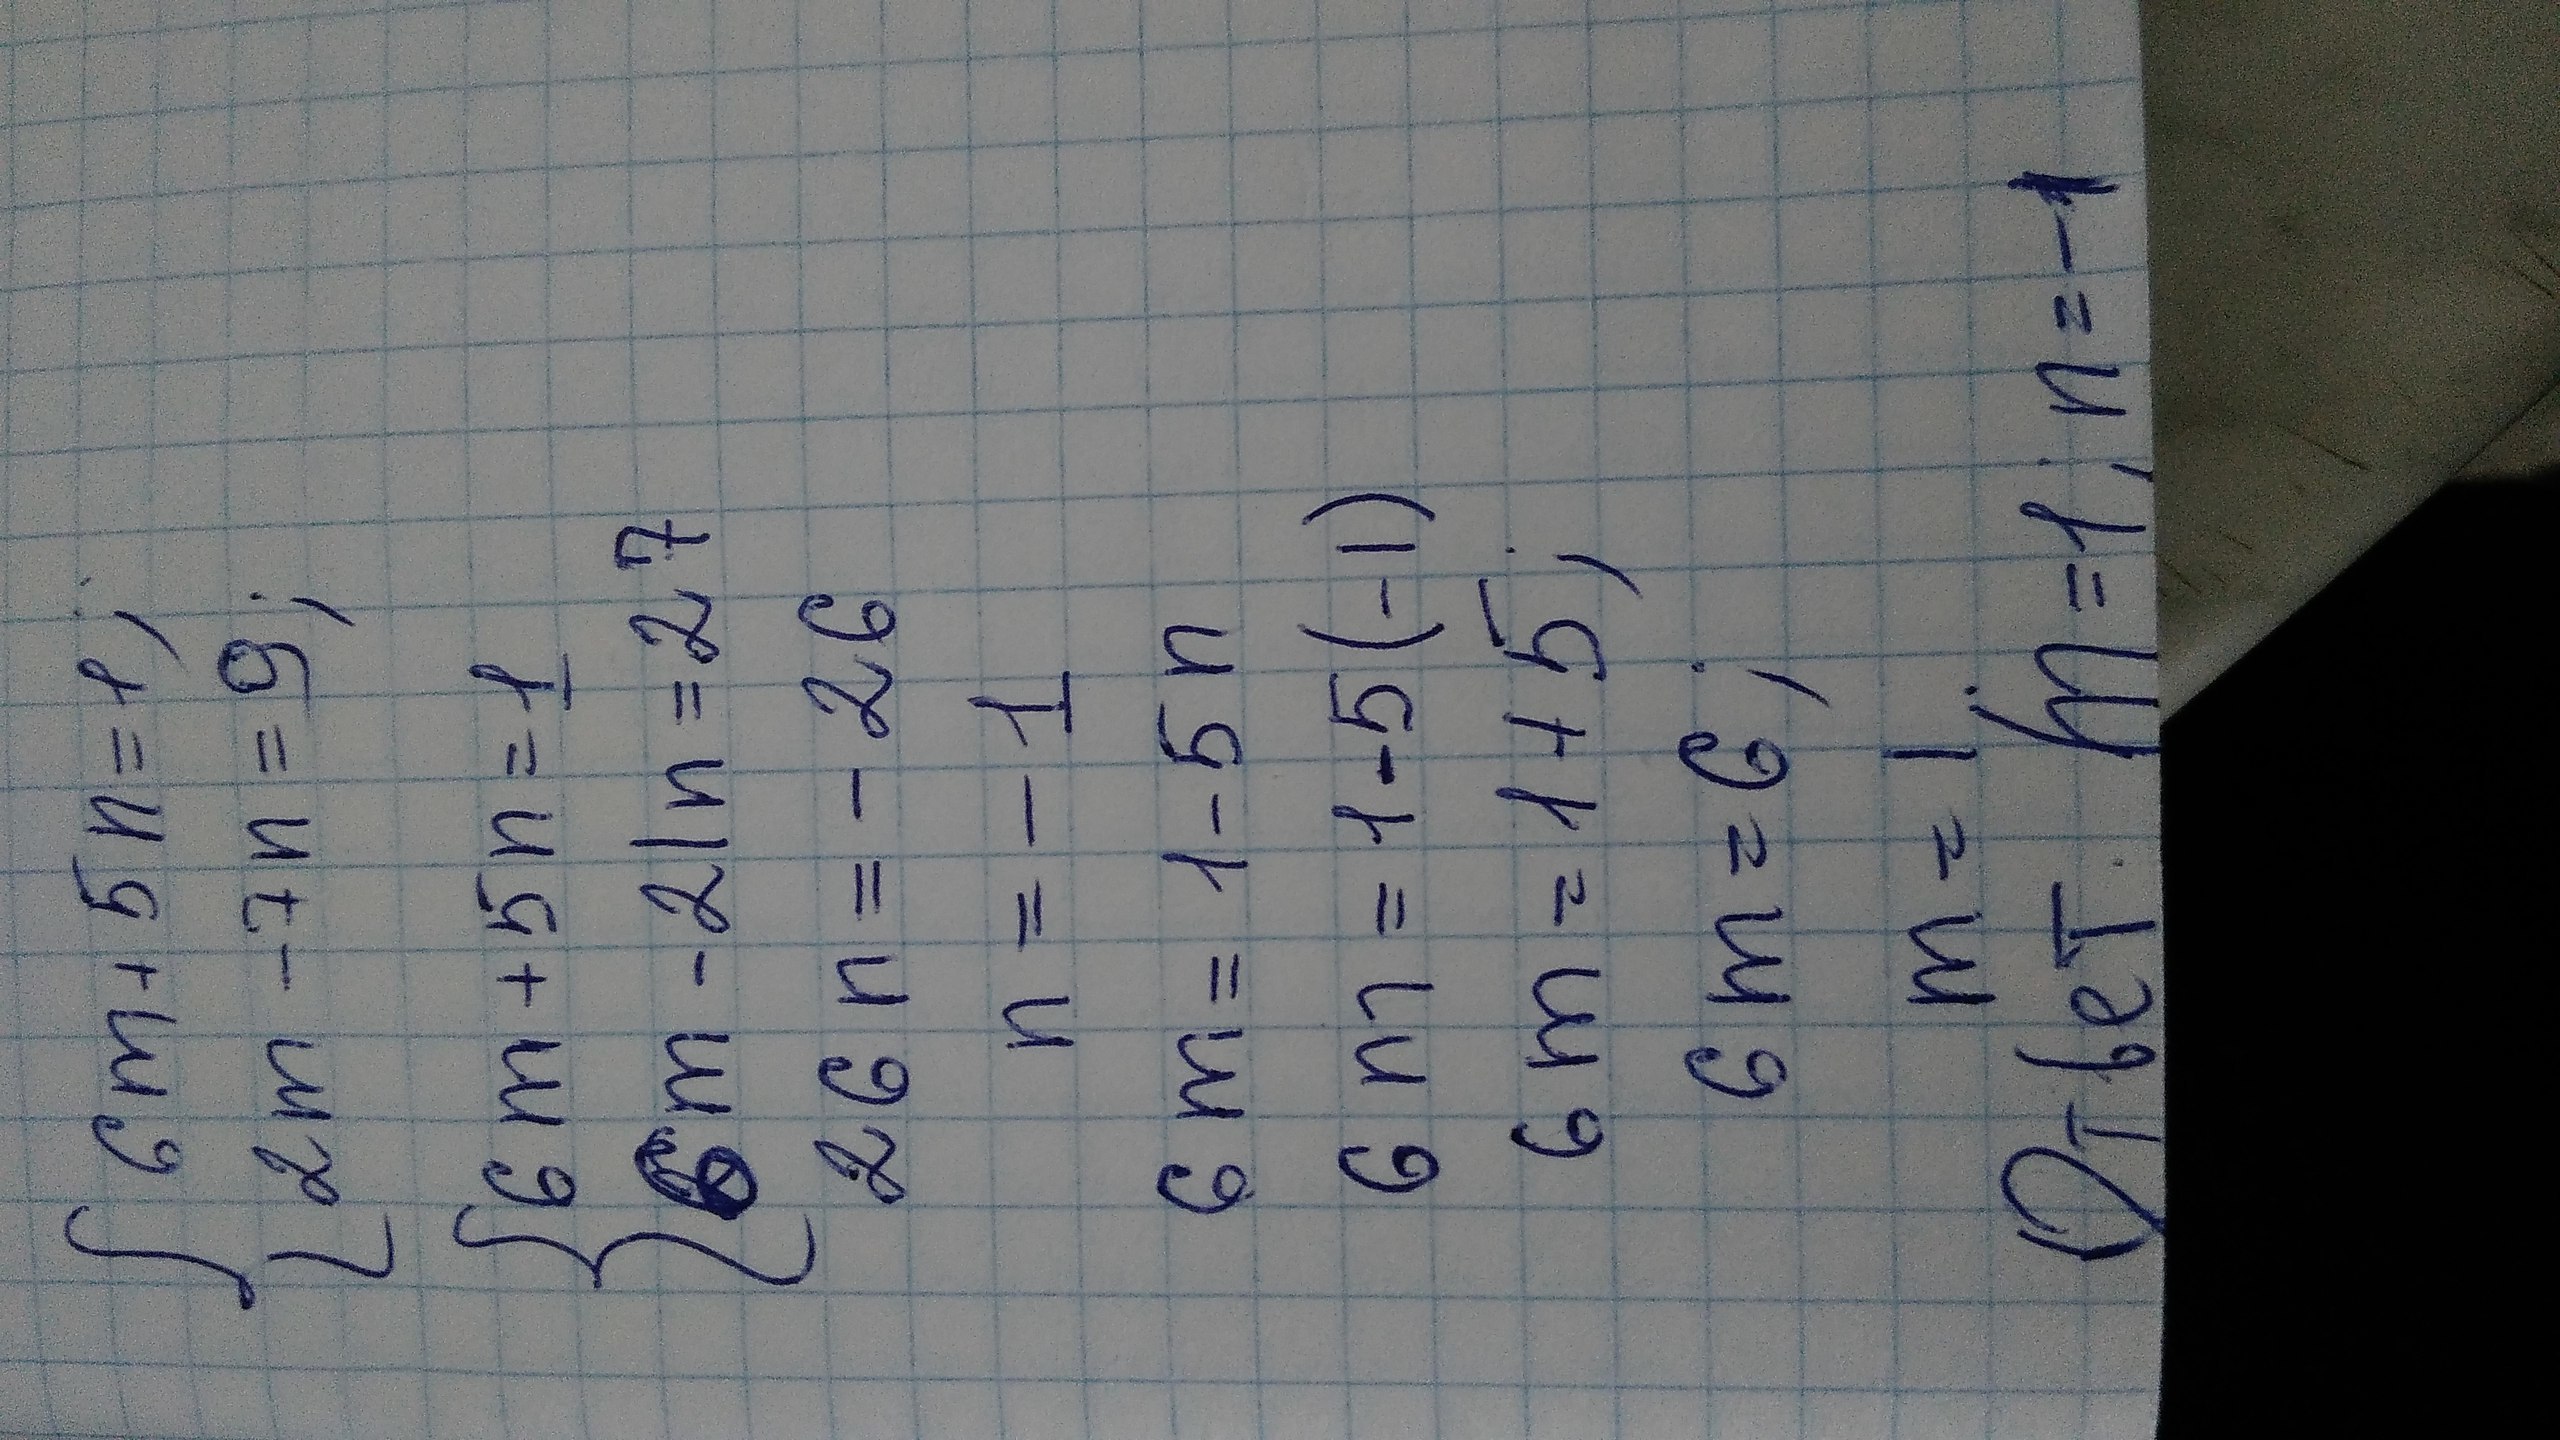 { 6m + 5n = 1;
2m - 7n = 9;
{ 6m + 5n = 1
6m - 21n = 27
26n = - 26
n = - 1
6m = 1 - 5n
6m = 1 - 5(-1)
6m = 1 + 5;
6m = 6;
m = 1
Ответ: m = 1; n = -1